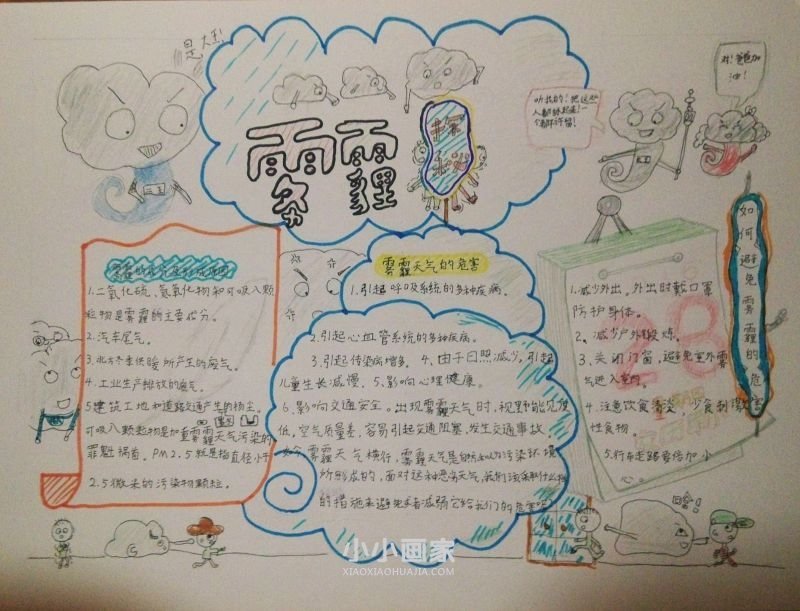 是大王!
雾霾
探秘
听我的!把这些
人都
一个都不许留!
对!爸爸加
油!
雾霾的成分及形成原因
1.二氧化硫,氮氧化物和可吸入颗
粒物是雾霾的主要成分。
2.汽车尾气。
3.北方冬季供暖所产生的废气。
4.工业生产排放的废气。
5建筑工地和道路交通产生的扬尘。
可吸入颗粒物是加重雾霾天气污染的
罪魁祸首。PM2.5就是指直径小于
2.5微米的污染物颗粒。
雾霾天气的危害
1.引起呼吸系统的多种疾病。
2.引起心血管系统的多种疾病。
3.引起传染病增多。4、由于日照减少,引起
儿童生长减慢。5.影响心理健康。
6.影响交通安全。出现雾霾天气时,视野能见度
低,空气质量差,容易引起交通阻塞,发生交通事故。
如今雾霾天气横行,雾霾天气是自然以为污染环境
所形成的,面对这种恶劣天气,我们该采取什么样
的措施来避免或者减弱它给我们的危害呢?
如何避免雾霾的危害
28
1.减少外出。外出时戴口罩
防护身体。
2、减少户外锻炼。
3、关闭门窗,避免室外雾
气进入室内。
4、注意饮食清淡,少食刺激
性食物
5.行车走路要倍加小
心。
小小画家
XIAOXIAOHUAJIA.COM